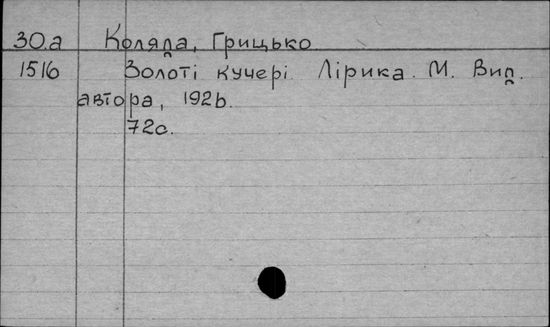 30.а Коляда, Грицько
1516 Золоті кучері. Лірика. М. Вид.
автора, 1926.
72с.